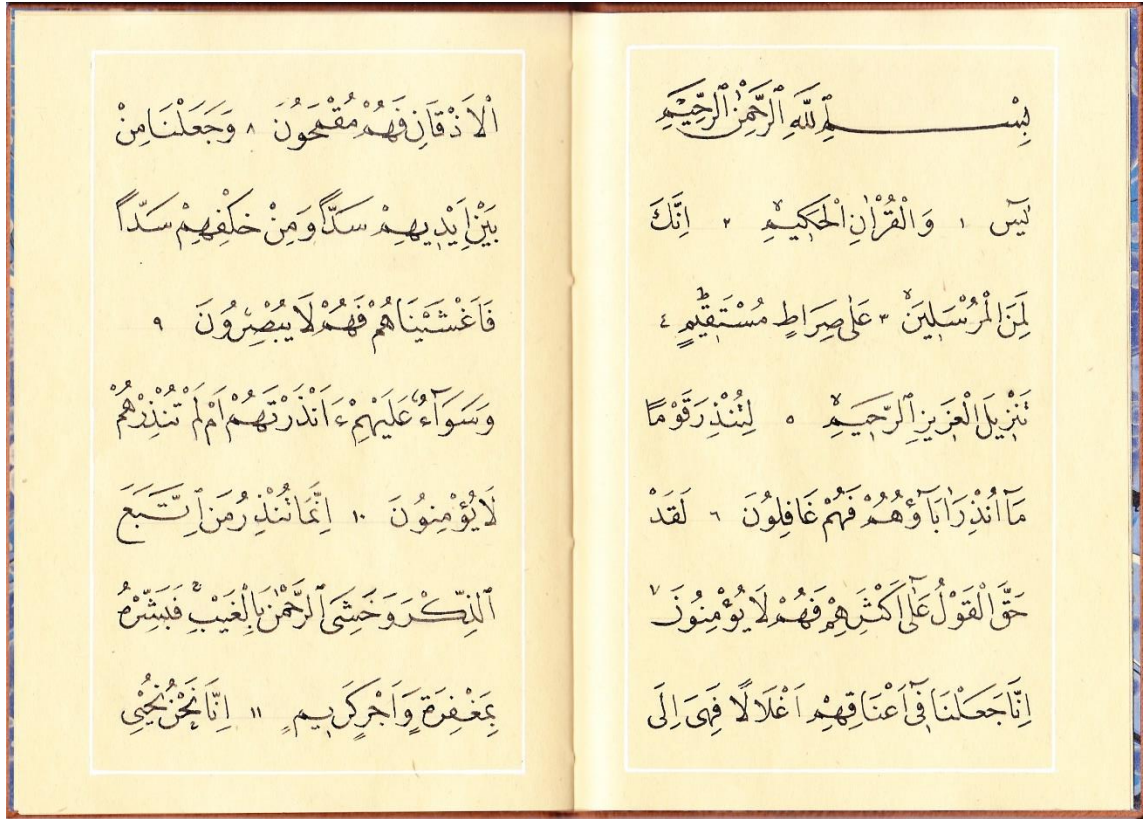 بِسْمِ ٱللَّهِ ٱلرَّحْمٰنِ ٱلرَّحِيمِ
يٰسٓ ١ وَالْقُرْاٰنِ الْحَكِيمِۙ ٢ اِنَّكَ
لَمِنَ الْمُرْسَلِينَۙ ٣ عَلٰى صِرَاطٍ مُسْتَقِيمٍؕ ٤
تَنْزِيلَ الْعَزِيزِ ٱلرَّحِيمِۙ ٥ لِتُنْذِرَ قَوْمًا
مَٓا اُنْذِرَ اٰبَٓاؤُهُمْ فَهُمْ غَافِلُونَ ٦ لَقَدْ
حَقَّ الْقَوْلُ عَلٰٓى اَكْثَرِهِمْ فَهُمْ لَا يُؤْمِنُونَ ٧
اِنَّا جَعَلْنَا فِٓى اَعْنَاقِهِمْ اَغْلَالًا فَهِىَ اِلَى
الْاَذْقَانِ فَهُمْ مُقْمَحُونَ ٨ وَجَعَلْنَا مِنْ
بَيْنِ اَيْدِيهِمْ سَدًّا وَمِنْ خَلْفِهِمْ سَدًّا
فَاَغْشَيْنَاهُمْ فَهُمْ لَا يُبْصِرُونَ ٩
وَسَوَٓاءٌ عَلَيْهِمْ ءَاَنْذَرْتَهُمْ اَمْ لَمْ تُنْذِرْهُمْ
لَا يُؤْمِنُونَ ١٠ اِنَّمَا تُنْذِرُ مَنِ ٱتَّبَعَ
ٱلذِّكْرَ وَخَشِىَ ٱلرَّحْمٰنَ بِالْغَيْبِۚ فَبَشِّرْهُ
بِمَغْفِرَةٍ وَاَجْرٍ كَرِيمٍ ١١ اِنَّا نَحْنُ نُحْيِى